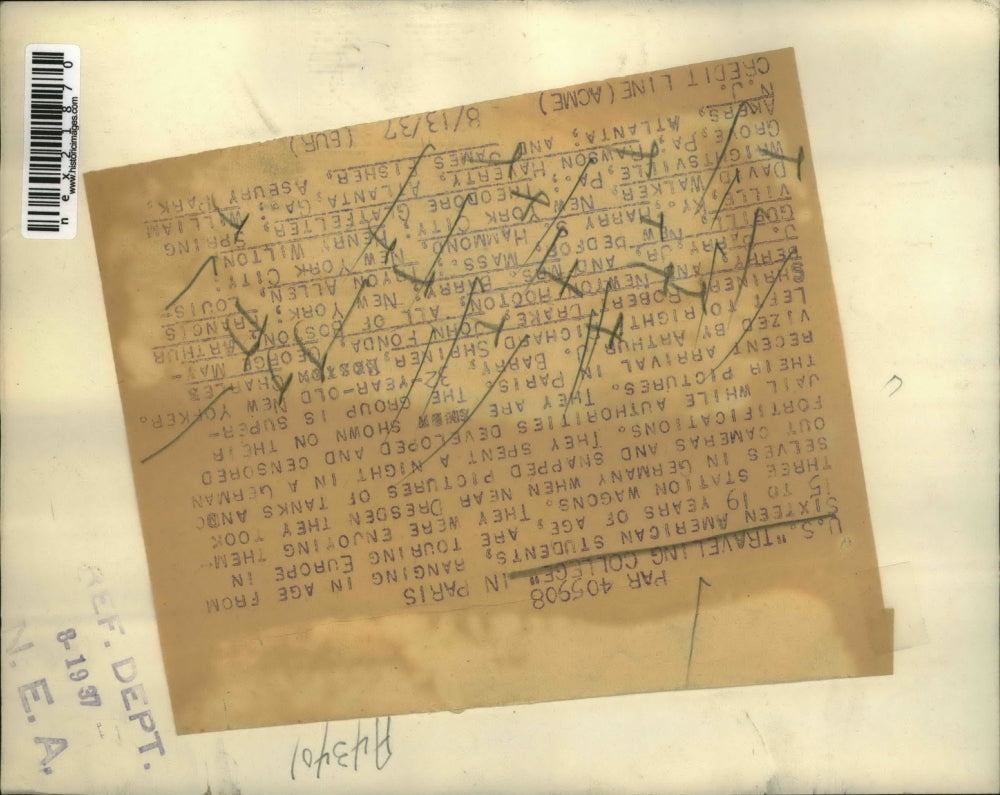 PAR 405908
U.S. "TRAVELING COLLEGE" IN PARIS
SIXTEEN AMERICAN STUDENTS, RANGING IN AGE FROM
15 TO 19 YEARS OF AGE, ARE TOURING EUROPE IN
THREE STATION WAGONS. THEY WERE ENJOYING THEM-
SELVES IN GERMANY WHEN NEAR DRESDEN THEY TOOK
OUT CAMERAS AND SNAPPED PICTURES OF TANKS AND
FORTIFICATIONS. THEY SPENT A NIGHT IN A GERMAN
JAIL WHILE AUTHORITIES DEVELOPED AND CENSORED
THEIR PICTURES. THEY ARE SHOWN ON THEIR
RECENT ARRIVAL IN PARIS. THE GROUP IS SUPER-
VIZED BY ARTHUR J. BARRY, 22-YEAR-OLD NEW YORKER.
LEFT TO RIGHT RICHARD SHRINER, BOSTON CHARLES
SHRINER, ROBERT DRAKE, JOHN FONDA, GEORGE MAY-
BERRY AND NEWTON HOOTON, ALL OF BOSTON; ARTHUR
J. BARRY, JR. AND MRS. BARRY, NEW YORK, FRANCIS
NEW BEDFORD, MASS.; LYON ALLEN, LOUIS-
VILLE, KY.; HARRY HAMMOND, NEW YORK CITY;
DAVID WALKER, NEW YORK CITY; HENRY WILTON,
WRIGHTSVILLE, PA.; THEODORE GLATFELTER, SPRING
GROVE, PA.; RAWSON HAVERTY, ATLANTA, GA.; WILLIAM
AKERS, ATLANTA; AND JAMES FISHER, ASBURY PARK,
N.J.
CREDIT LINE (ACME) 8/13/37 (EUR)
REF. DEPT.
8-19 37
N. E. A.
www.historicimages.com
nex21870